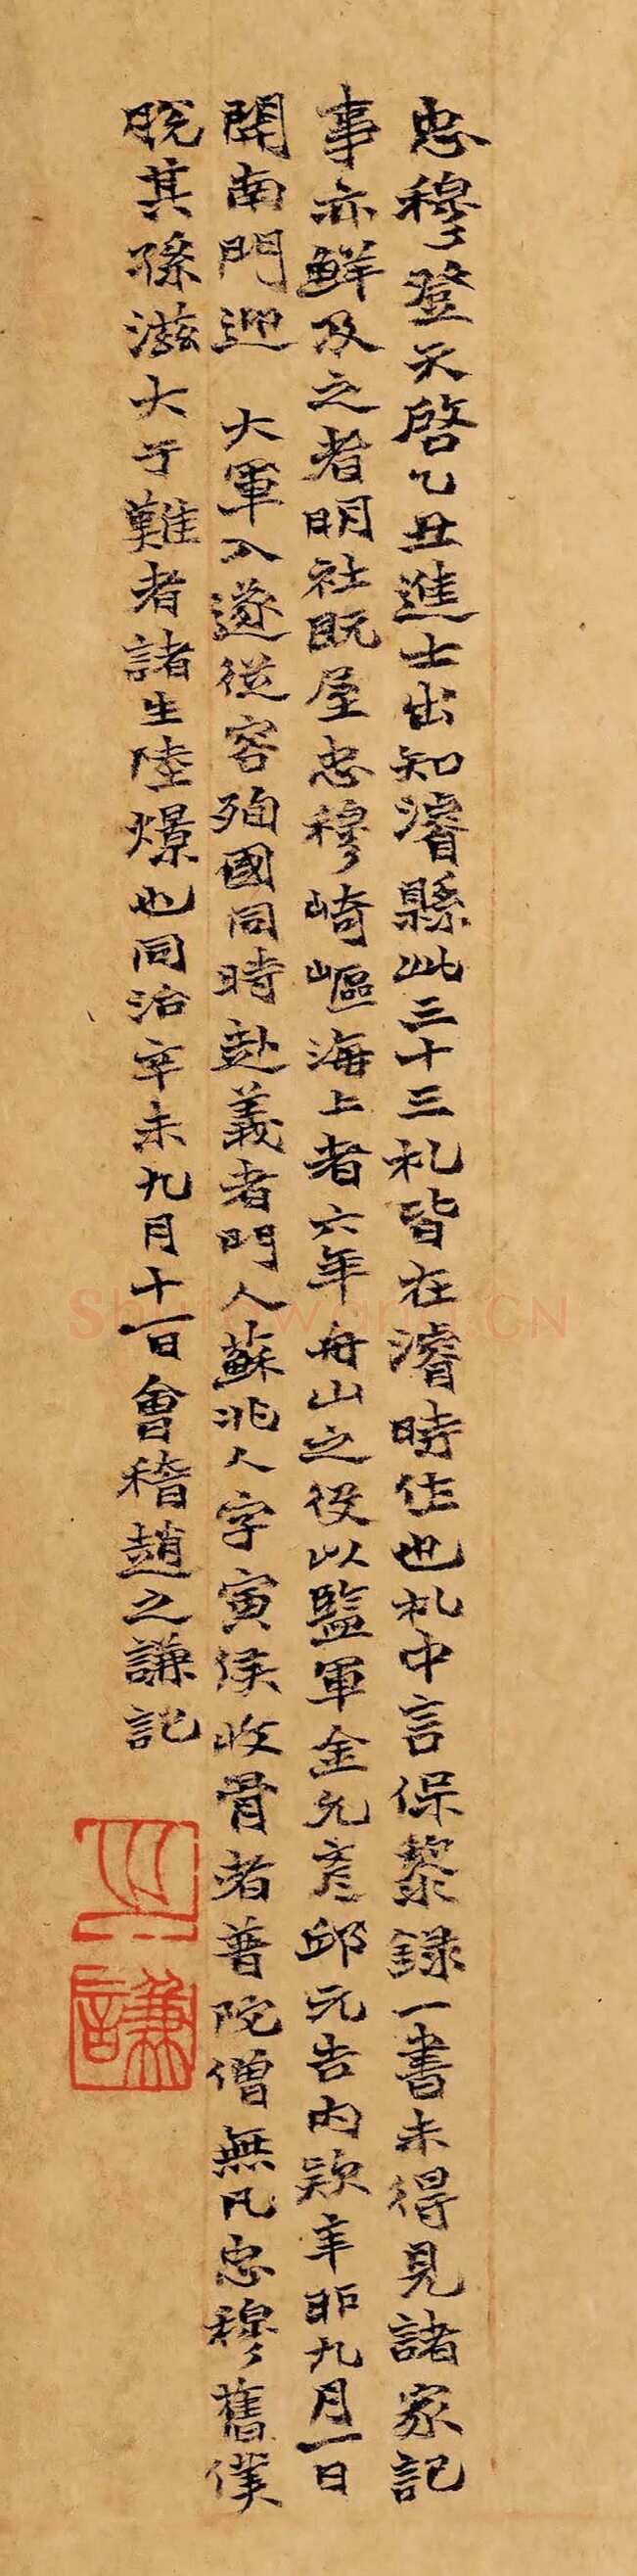 忠穆登天啓乙丑進士出知濬縣此三十三札皆在濬時作也札中言保黎録一書未得見諸家記
事亦鮮及之者明社既屋忠穆崎嶇海上者六年舟山之役以監軍金允彦邱元吉内款辛卯九月一日
開南門迎 大軍入遂從容殉國同時赴義者門人蘇兆人字寅侯收骨者普陀僧無凡忠穆舊僕
脱其孫滋大于難者諸生陸㷡也同治辛未九月十一日會稽趙之謙記
之謙